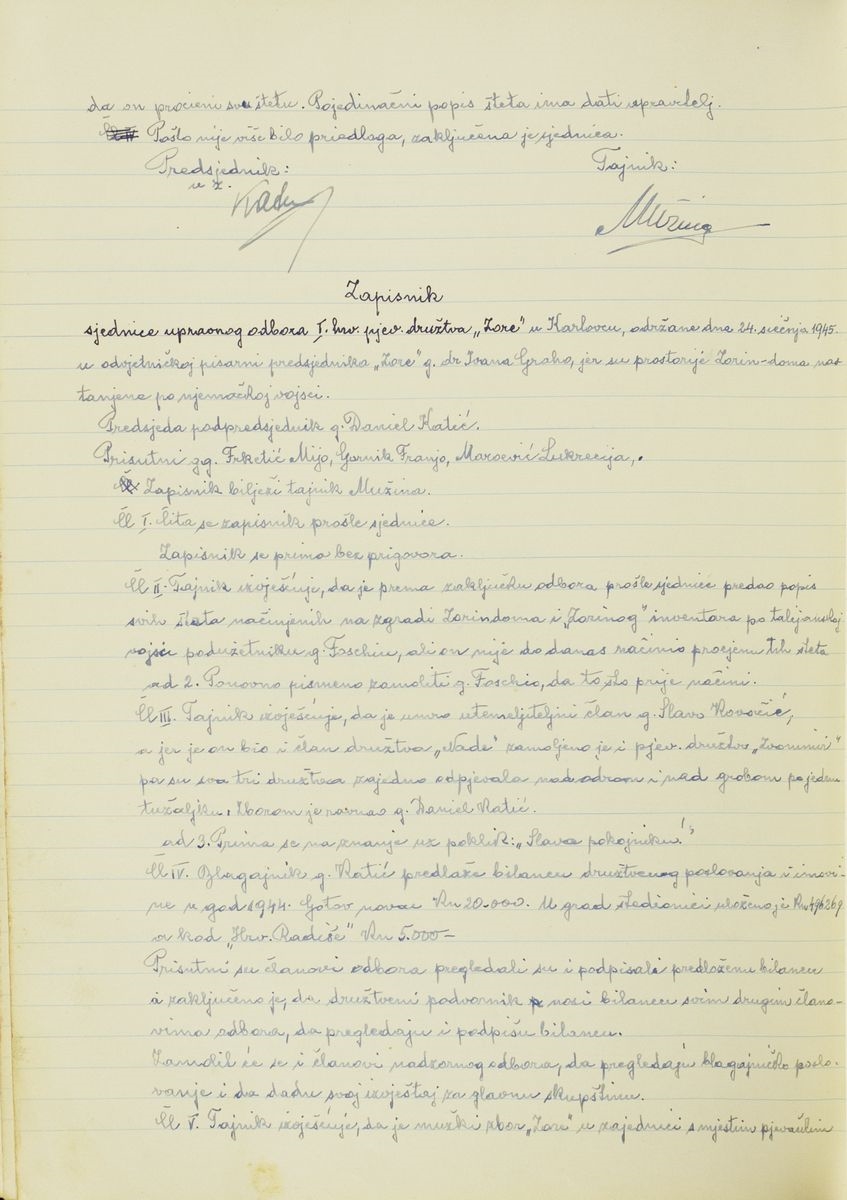 da on procieni svu štetu. Pojedinačni popis šteta ima dati upravitelj.
Pošto nije više bilo priedloga, zaključena je sjednica.
Predsjednik: Tajnik:
u z.
Mužina
Zapisnik
sjednice upravnog odbora I. hrv. pjev. družtva „Zore" u Karlovcu, održane dne 24. siečnja 1945.
u odvjetničkoj pisarni predsjednika „Zore" g. dr Ivana Graho, jer su prostorije Zorin-doma nas-
tanjene po njemačkoj vojsci.
Predsjeda podpredsjednik g. Daniel Katić.
Prisutni gg. Frketić Mijo, Gornik Franjo, Maroević Lukrecija,.
Zapisnik bilježi tajnik Mužina.
Čl I. Čita se zapisnik prošle sjednice.
Zapisnik se prima bez prigovora.
Čl II. Tajnik izvješćuje, da je prema zaključku odbora prošle sjednice predao popis
svih šteta načinjenih na zgradi Zorindoma i „Zorinog" inventara po talijanskoj
vojsci poduzetniku g. Foschiu, ali on nije do danas načinio procjenu tih šteta
ad 2. Ponovno pismeno zamoliti g. Foschio, da to što prije načini.
Čl III. Tajnik izvješćuje, da je umro utemeljiteljni član g. Slavo Kovačić,
a jer je on bio i član družtva „Nade" zamoljeno je i pjev. družtvo „Zvonimir"
pa su sva tri družtva zajedno odpjevala nad odrom i nad grobom po jednu
tužaljku. Zborom je ravnao g. Daniel Katić.
ad 3. Prima se na znanje uz poklik: „Slava pokojniku!"
Čl IV. Blagajnik g. Katić predlaže bilancu družtvenog poslovanja i imovi-
ne u god 1944. Gotov novac Kn 20.000. U grad štedionici uloženo je Kn 496.269
a kod „Hrv. Radiše" Kn 5.000–
Prisutni su članovi odbora pregledali su i podpisali predloženu bilancu
a zaključeno je, da družtveni podvornik nosi bilancu svim drugim člano-
vima odbora, da pregledaju i podpišu bilancu.
Zamolil će se i članovi nadzornog odbora, da pregledaju blagajničko poslo-
vanje i da dadu svoj izvještaj za glavnu skupštinu.
Čl V. Tajnik izvješćuje, da je mužki zbor „Zore" u zajednici s mjestnim pjevačkim